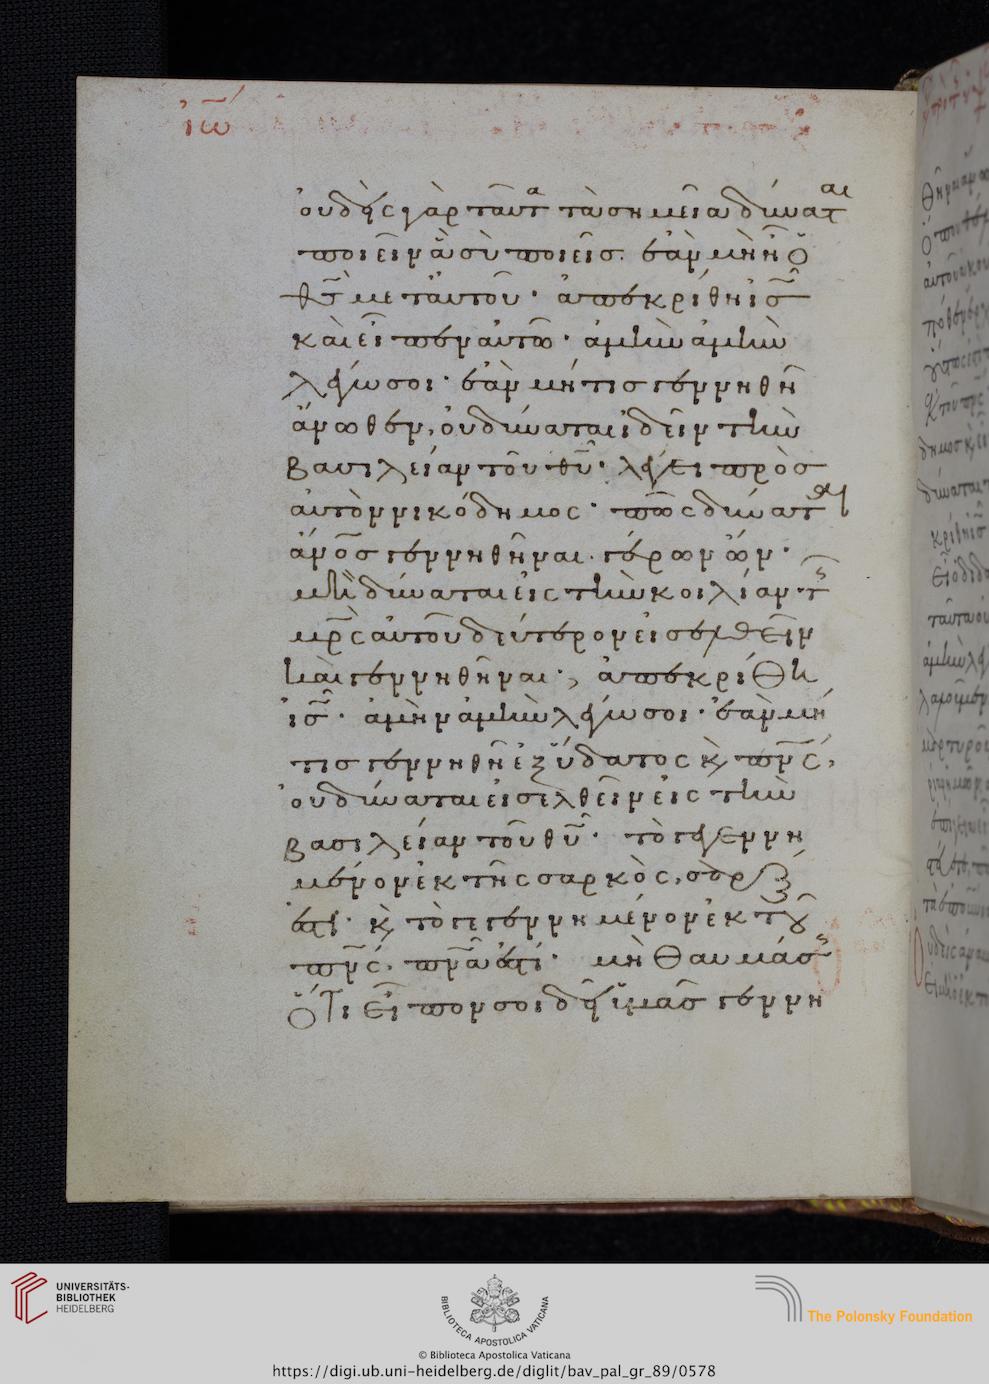 ἰω
οὐδεὶς γὰρ ταῦτα τὰ σημεῖα δύναται
ποιεῖν ἃ σὺ ποιεῖς. ἐὰν μὴ ἦ ὁ
θς μετ' αὐτοῦ· ἀπεκρίθη ις
καὶ εἶπεν αὐτῶ· ἀμὴν ἀμὴν
λέγω σοι· ἐὰν μή τις γεννηθῆ
ἄνωθεν, οὐ δύναται ἰδεῖν τὴν
βασιλείαν τοῦ θυ· λέγει πρὸς
αὐτὸν νικόδημος· πῶς δύναται
ἄνος γεννηθῆναι. γέρων ὤν·
μὴ δύναται εἰς τὴν κοιλίαν τῆς
μρς αὐτοῦ δεύτερον εἰσελθεῖν
καὶ γεννηθῆναι·, ἀπεκρίθη
ις· ἀμὴν ἀμὴν λέγω σοι· ἐὰν μή
τις γεννηθῆ ἐξ ὕδατος κ πνς,
οὐ δύναται εἰσελθεῖν εἰς τὴν
βασιλείαν τοῦ θυ· τὸ γεγεννη
μένον ἐκ τῆς σαρκὸς, σὰρξ
ἐστί· κ τὸ γεγεννημένον ἐκ τοῦ
πνς, πνα ἐστί· μὴ θαυμάσης
ὅτι εἶπον σοι δεῖ ὑμᾶς γεννη
UNIVERSITÄTS-
BIBLIOTHEK
HEIDELBERG
BIBLIOTECA APOSTOLICA VATICANA
The Polonsky Foundation
© Biblioteca Apostolica Vaticana
https://digi.ub.uni-heidelberg.de/diglit/bav_pal_gr_89/0578